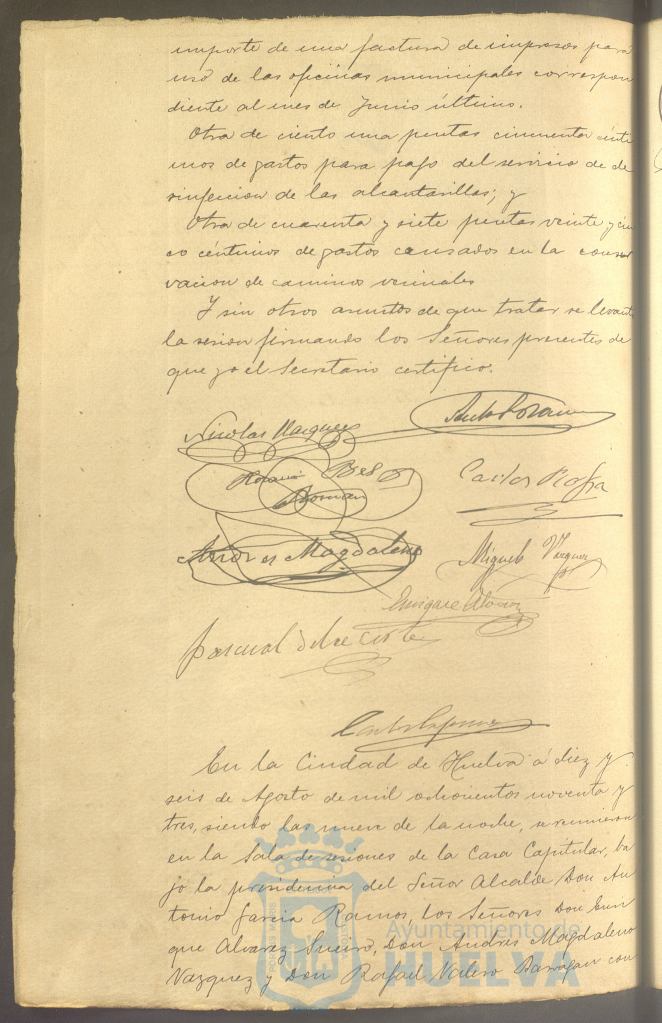 importe de una factura de impresos para
uso de las oficinas municipales correspon
diente al mes de Junio último.
Otra de ciento una pesetas cincuenta cénti
mos de gastos para pago del servicio de de
sinfeccion de las alcantarillas; y
Otra de cuarenta y siete pesetas veinte y cin
co céntimos de gastos causados en la conser
vacion de caminos vecinales
Y sin otros asuntos de que tratar se levantó
la sesion firmando los Señores presentes de
que yo el Secretario certifico.
Nicolas Vazquez
Carlos
Roman
Andres Magdaleno
Miguel Vazquez
Enrique Alvarez
Pascual
En la Ciudad de Huelva á diez y
seis de Agosto de mil ochocientos noventa y
tres, siendo las nueve de la noche, se reunieron
en la Sala de sesiones de la Casa Capitular, ba
jo la presidencia del Señor Alcalde Don An
tonio Garcia Ramos, los Señores Don Enri
que Alvarez Sueiro, Don Andres Magdaleno
Vazquez y Don Rafael Valero Barragan con
Ayuntamiento de
HUELVA